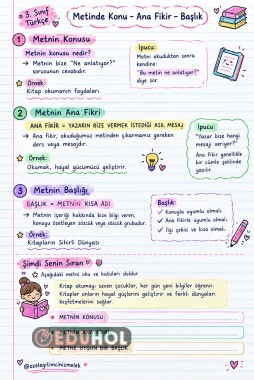 3. Sınıf
Türkçe
Metinde Konu - Ana Fikir - Başlık
1 Metnin Konusu
Metnin konusu nedir?
→ Metnin bize "Ne anlatıyor?"
sorusunun cevabıdır.
Örnek:
Kitap okumanın faydaları.
İpucu:
Metni okuduktan sonra
kendine:
"Bu metin ne anlatıyor?"
diye sor.
2 Metnin Ana Fikri
ANA FİKİR = YAZARIN BİZE VERMEK İSTEDİĞİ ASIL MESAJ
→ Ana fikir, okuduğumuz metinden çıkarmamız gereken
ders veya mesajdır.
Örnek:
Okumak, hayal gücümüzü geliştirir.
İpucu:
"Yazar bize hangi
mesajı veriyor?"
Ana fikir genellikle
bir cümle şeklinde
yazılır.
3 Metnin Başlığı
BAŞLIK = METNİN KISA ADI
→ Metnin içeriği hakkında bize bilgi veren,
konuyu özetleyen sözcük veya sözcük grubudur.
Örnek:
Kitapların Sihirli Dünyası
Başlık:
✓ Konuyla uyumlu olmalı.
✓ Ana fikirle uyumlu olmalı.
✓ İlgi çekici ve kısa olmalı.
Şimdi Senin Sıran
Aşağıdaki metni oku ve kutuları doldur.
Kitap okumayı seven çocuklar, her gün yeni bilgiler öğrenir.
Kitaplar onların hayal güçlerini geliştirir ve farklı dünyaları
keşfetmelerini sağlar.
METNİN KONUSU:
EDUHOL
METNE UYGUN BİR BAŞLIK
@ozelegitimcinizmelek